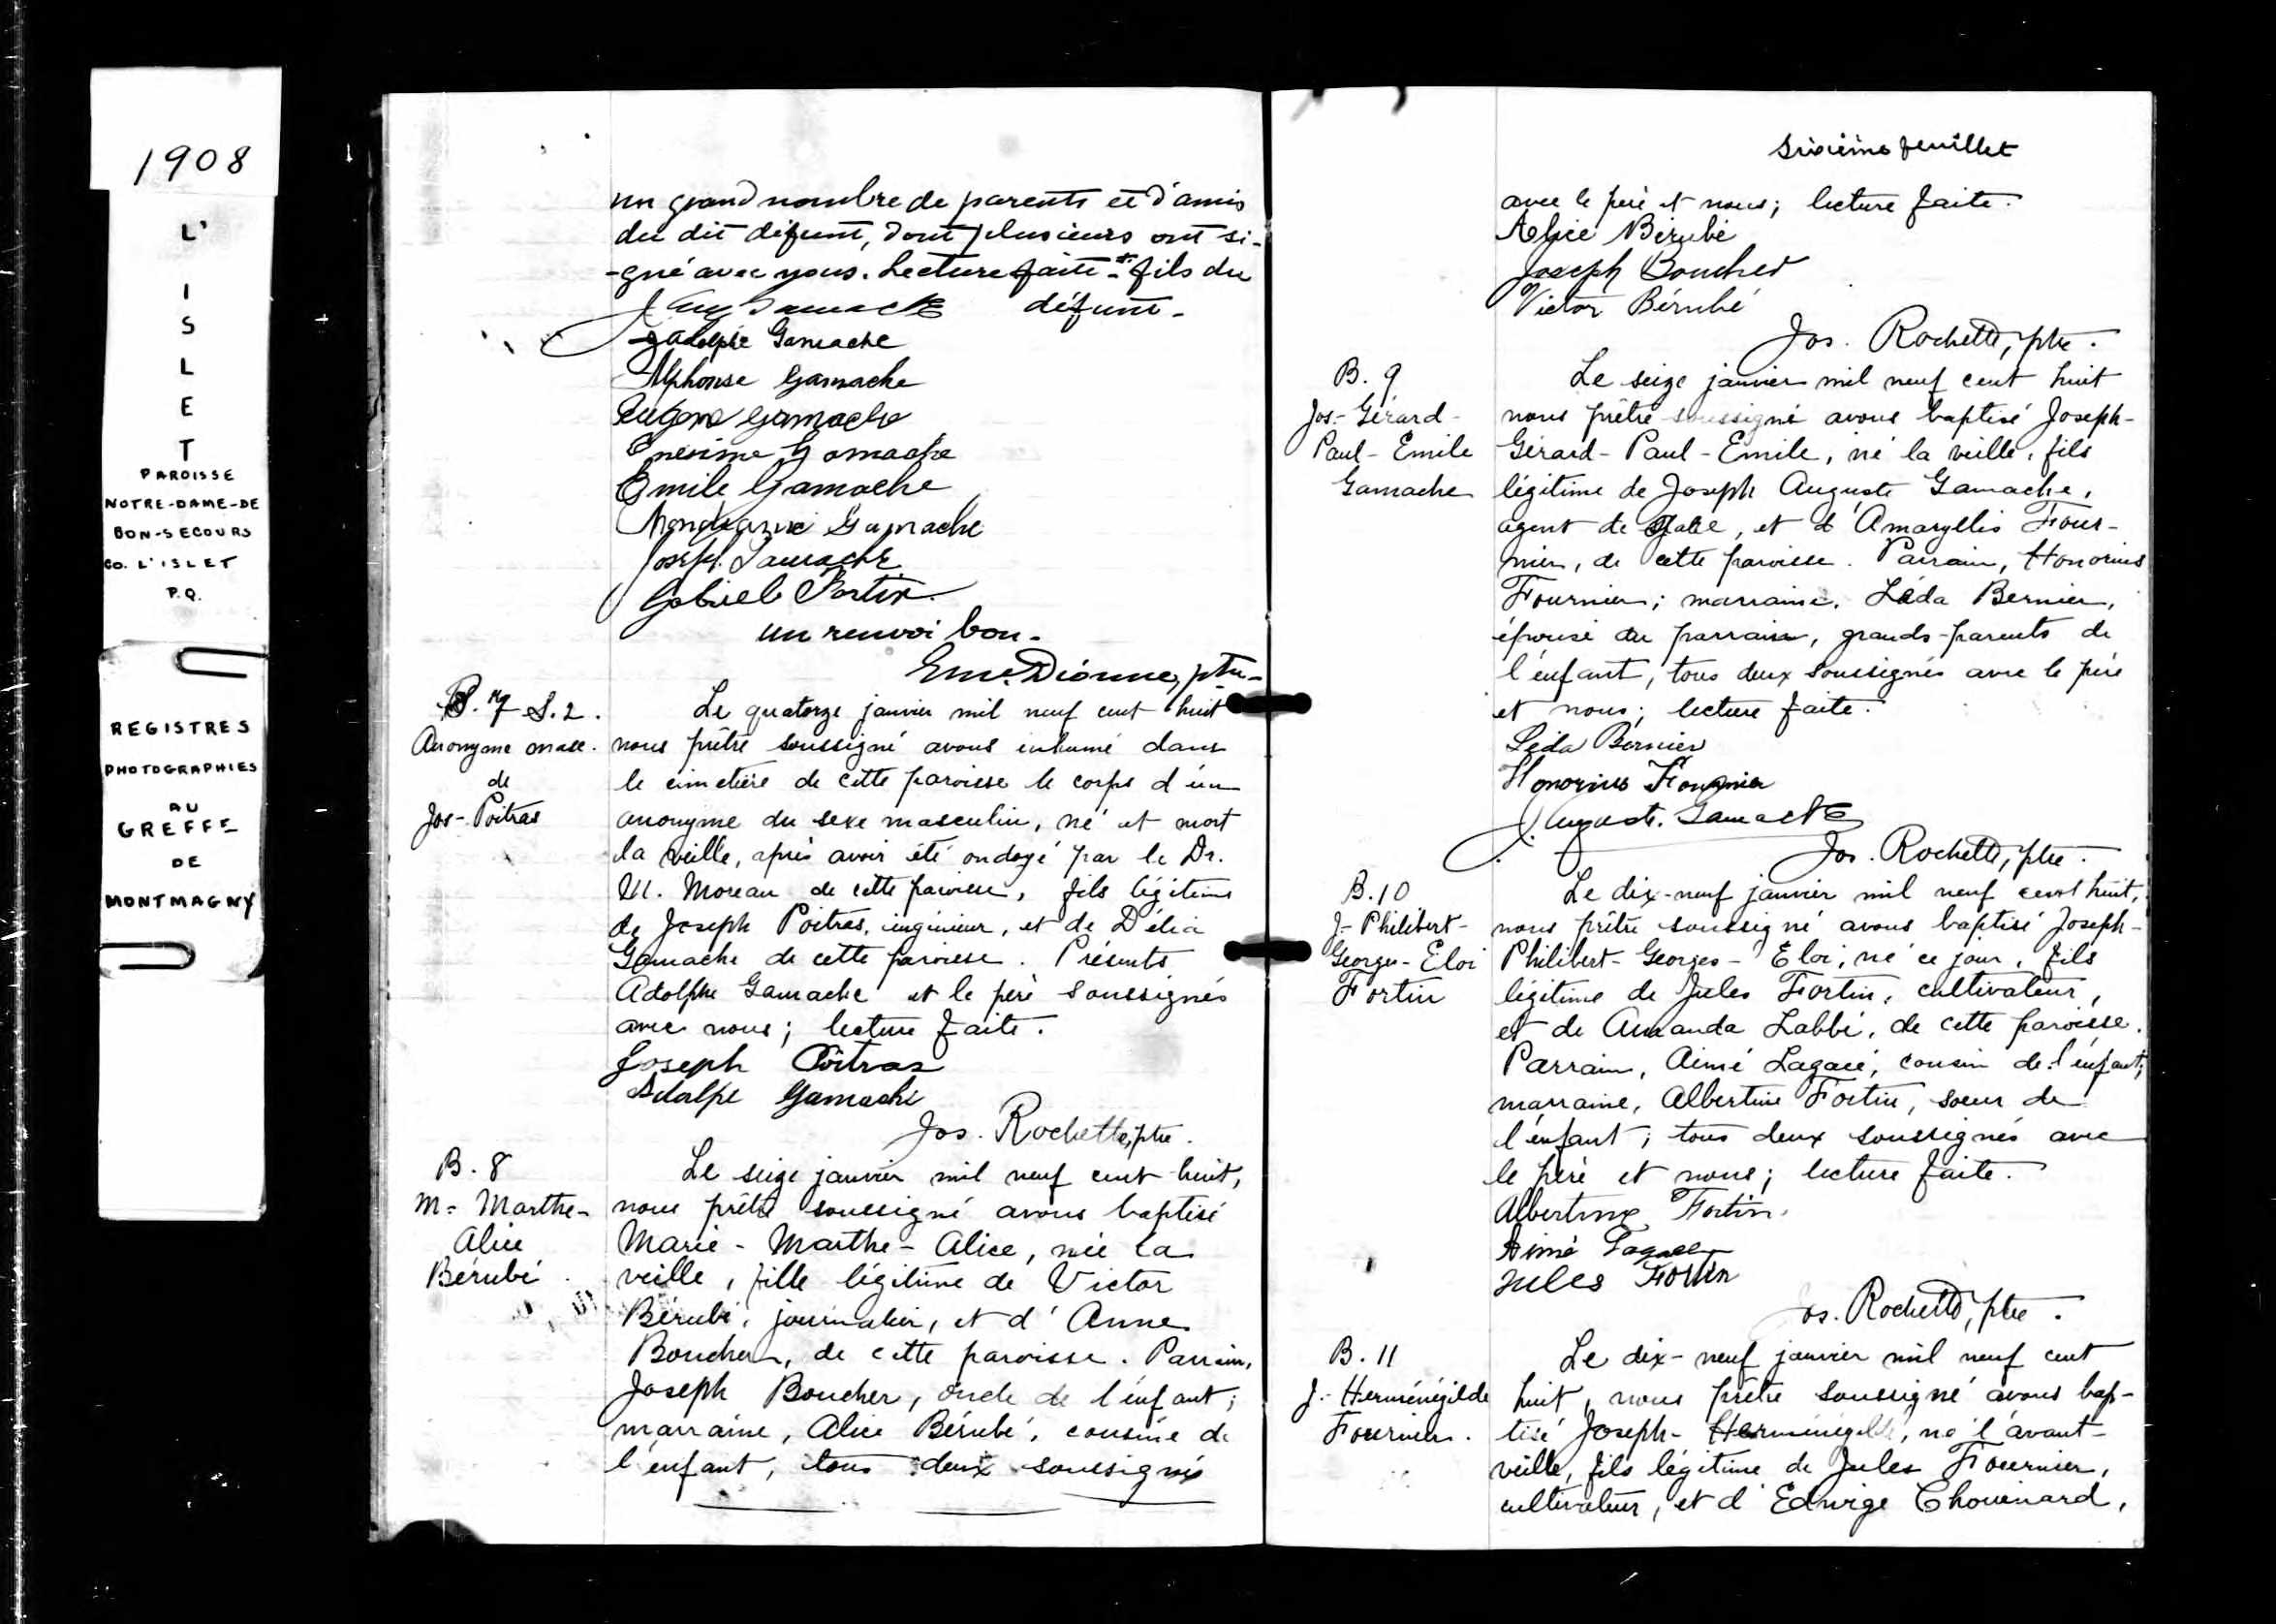 1908
L'
I
S
L
E
T
PAROISSE
NOTRE-DAME-DE
BON-SECOURS
CO. L'ISLET
P.Q.
REGISTRES
PHOTOGRAPHIES
AU
GREFFE
DE
MONTMAGNY
un grand nombre de parents et d'amis
du dit défunt, dont plusieurs ont si-
-gné avec nous. Lecture faite * fils du
défunt-
J Aug Gamache
Jadolphe Gamache
Alphonse Gamache
Eugene Gamache
Onesime Gamache
Emile Gamache
Gamache
Joseph Gamache
Gabriel Fortin
un renvoi bon-
Em. Dionne, ptre-
B. 7 S.2.
Anonyme masc.
de
Jos-Poitras
Le quatorze janvier mil neuf cent huit
nous prêtre soussigné avons inhumé dans
le cimetière de cette paroisse le corps d'un
anonyme du sexe masculin, né et mort
la veille, après avoir été ondoyé par le Dr.
M. Moreau de cette paroisse, fils légitime
de Joseph Poitras, ingénieur, et de Délia
Gamache de cette paroisse. Présents
Adolphe Gamache et le père soussignés
avec nous; lecture faite.
Joseph Poitras
Adolphe Gamache
Jos. Rochette, ptre.
B. 8
M= Marthe-
Alice
Bérubé
Le seize janvier mil neuf cent huit,
nous prêtre soussigné avons baptisé
Marie-Marthe-Alice, née la
veille, fille légitime de Victor
Bérubé, journalier, et d'Anne
Boucher, de cette paroisse. Parrain,
Joseph Boucher, oncle de l'enfant;
marraine, Alice Bérubé, cousine de
l'enfant, tous deux soussignés
Sixième feuillet
avec le père et nous; lecture faite.
Alice Bérubé
Joseph Boucher
Victor Bérubé
Jos. Rochette, ptre.
B. 9
Jos-Gérard-
Paul-Emile
Gamache
Le seize janvier mil neuf cent huit
nous prêtre soussigné avons baptisé Joseph-
Gérard-Paul-Emile, né la veille, fils
légitime de Joseph Auguste Gamache,
agent de gare, et d'Amaryllis Four-
nier, de cette paroisse. Parrain, Honorius
Fournier; marraine, Léda Bernier,
épouse du parrain, grands-parents de
l'enfant, tous deux soussignés avec le père
et nous; lecture faite.
Léda Bernier
Honorius Fournier
J. Auguste. Gamache
Jos. Rochette, ptre.
B. 10
J-Philibert-
Georges-Eloi
Fortin
Le dix-neuf janvier mil neuf cent huit,
nous prêtre soussigné avons baptisé Joseph-
Philibert-Georges-Eloi, né ce jour, fils
légitime de Jules Fortin, cultivateur,
et de Amanda Labbé, de cette paroisse.
Parrain, Aimé Lagacé, cousin de l'enfant;
marraine, Albertine Fortin, soeur de
l'enfant; tous deux soussignés avec
le père et nous; lecture faite.
Albertine Fortin.
Aimé Lagacé
Jules Fortin
Jos. Rochette, ptre.
B. 11
J-Herménégilde
Fournier.
Le dix-neuf janvier mil neuf cent
huit, nous prêtre soussigné avons bap-
tisé Joseph-Herménégilde, né l'avant-
veille, fils légitime de Jules Fournier,
cultivateur, et d'Edwige Chouinard,